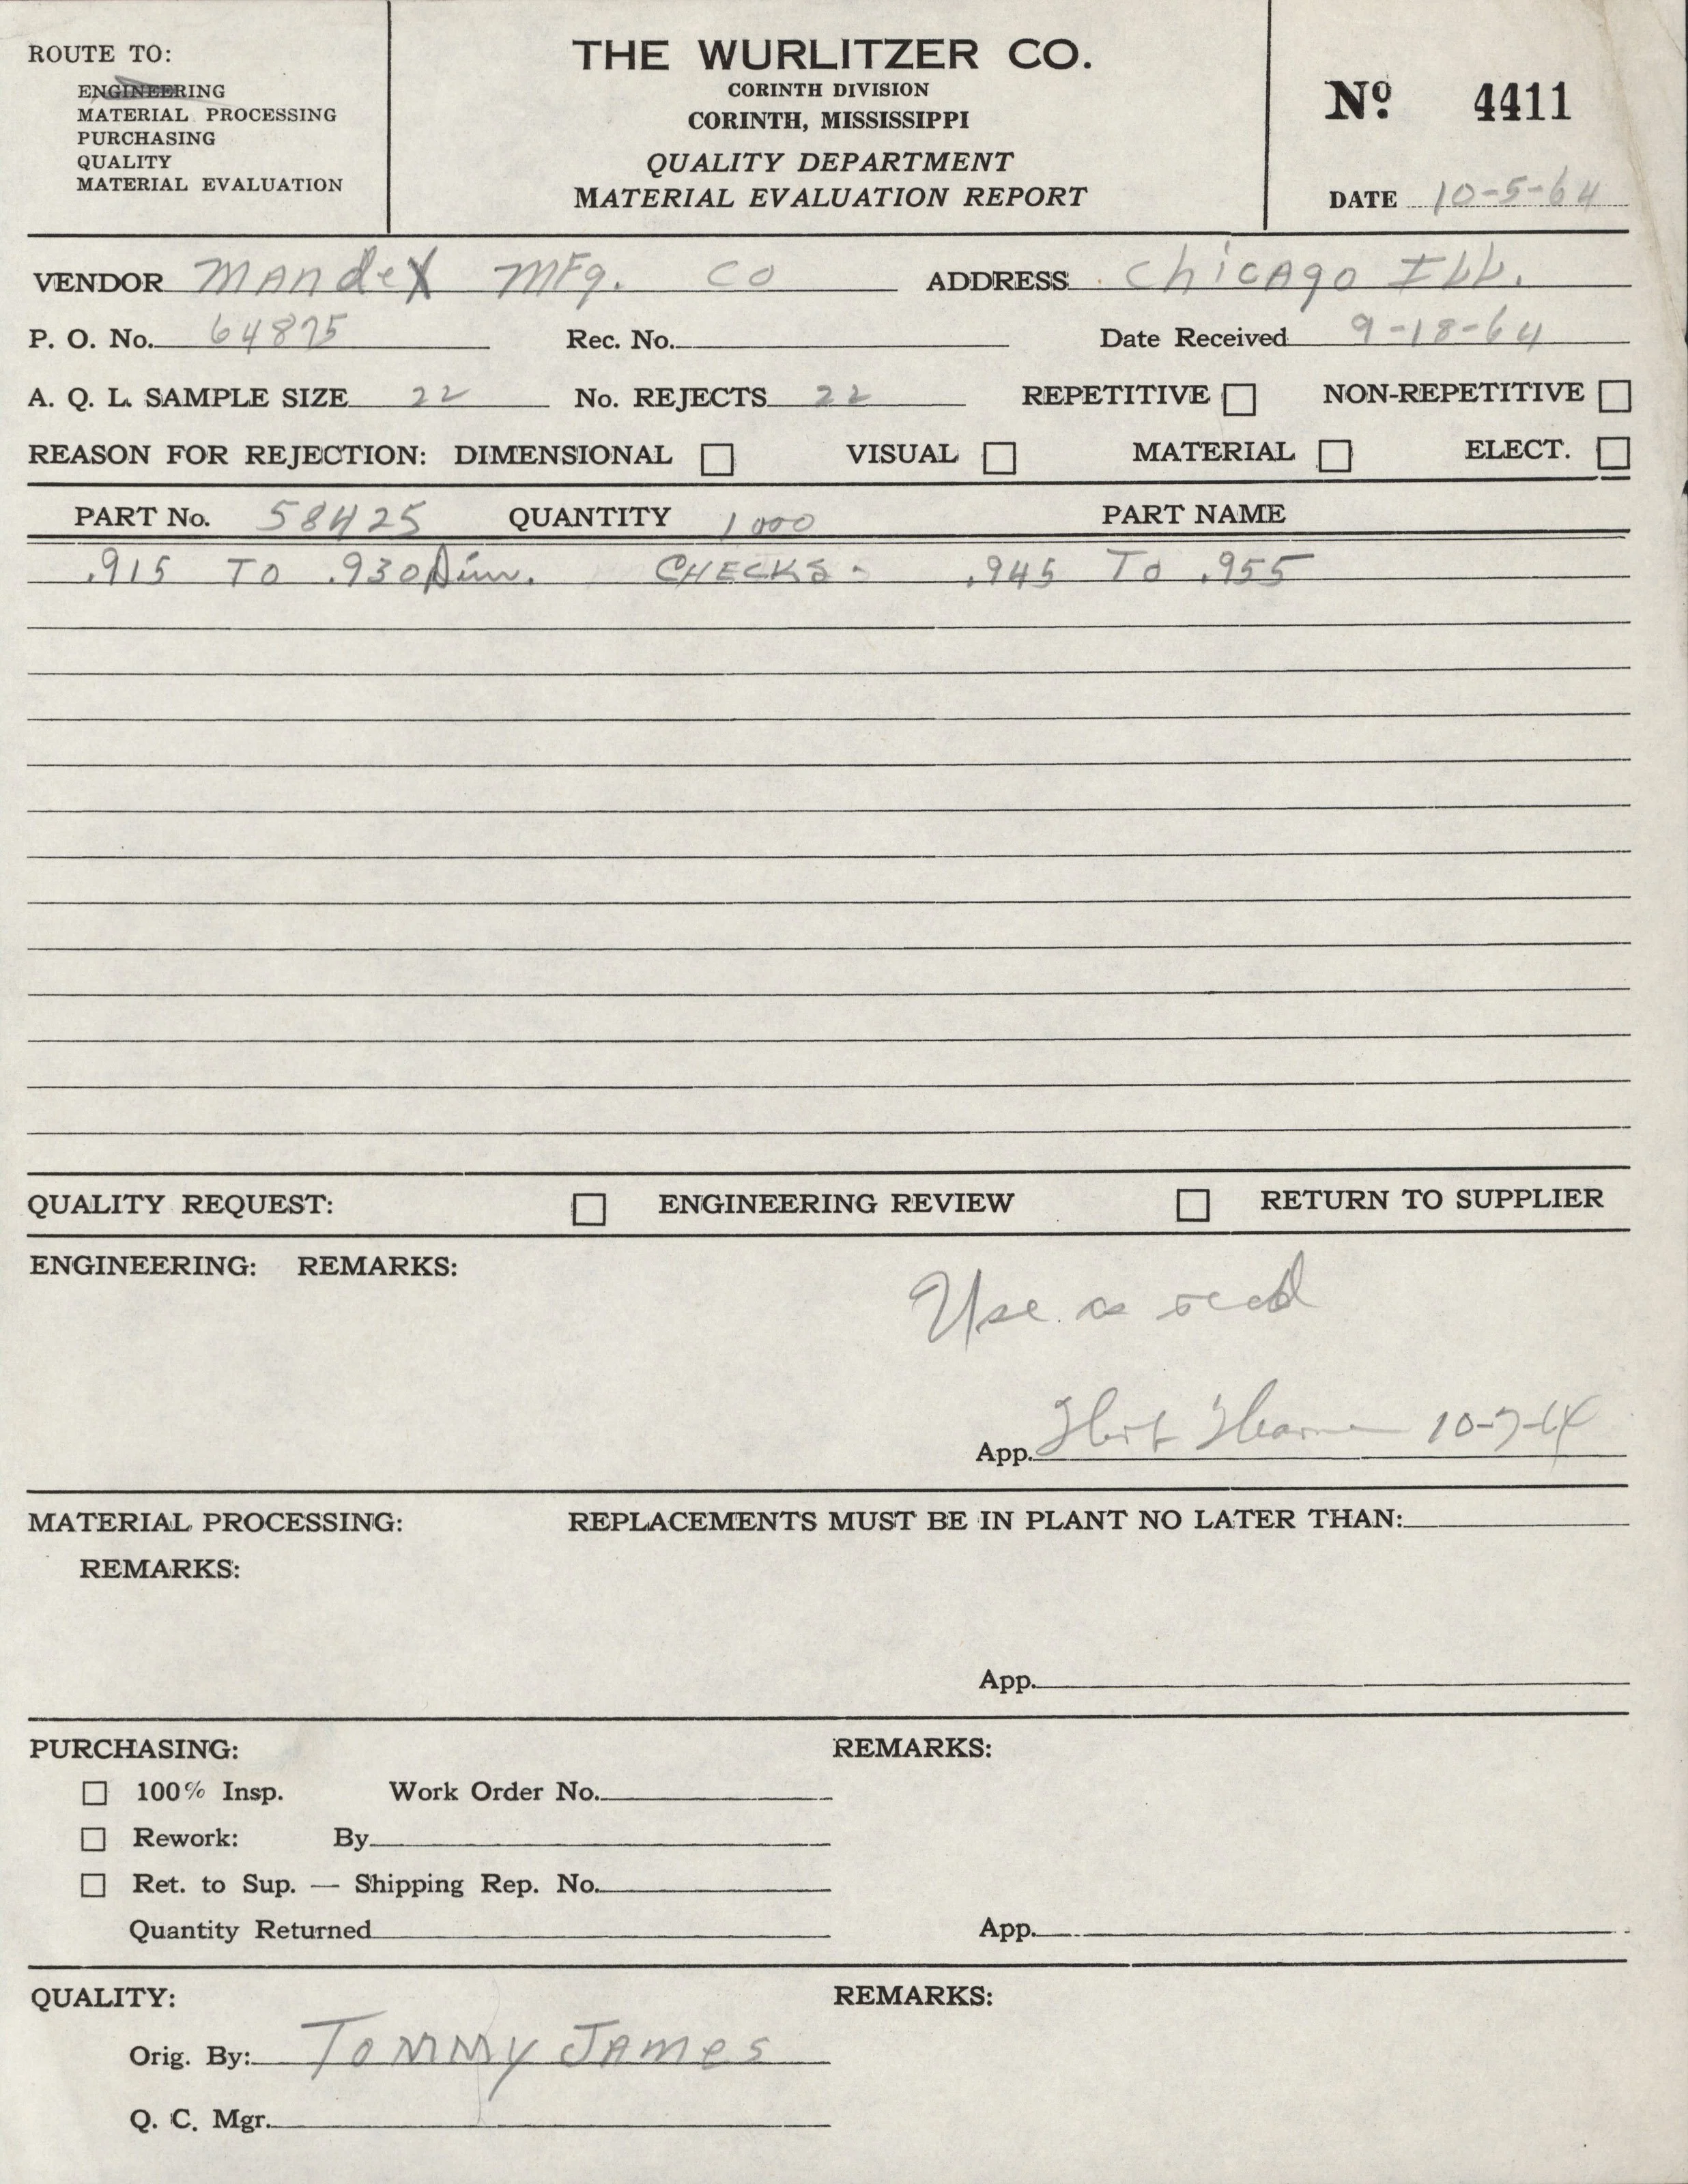 ROUTE TO:
ENGINEERING
MATERIAL PROCESSING
PURCHASING
QUALITY
MATERIAL EVALUATION
THE WURLITZER CO.
CORINTH DIVISION
CORINTH, MISSISSIPPI
QUALITY DEPARTMENT
MATERIAL EVALUATION REPORT
Nº 4411
DATE 10-5-64
VENDOR Mandex Mfg. Co ADDRESS Chicago Ill.
P. O. No. 64875 Rec. No. Date Received 9-18-64
A. Q. L. SAMPLE SIZE 22 No. REJECTS 22 REPETITIVE NON-REPETITIVE
REASON FOR REJECTION: DIMENSIONAL VISUAL MATERIAL ELECT.
PART No. 58425 QUANTITY 1000 PART NAME
.915 TO .930 Dim. CHECKS - .945 TO .955
QUALITY REQUEST: ENGINEERING REVIEW RETURN TO SUPPLIER
ENGINEERING: REMARKS:
Use as recd
App. 10-7-64
MATERIAL PROCESSING: REPLACEMENTS MUST BE IN PLANT NO LATER THAN:
REMARKS:
App.
PURCHASING: REMARKS:
100% Insp. Work Order No.
Rework: By
Ret. to Sup. — Shipping Rep. No.
Quantity Returned App.
QUALITY: REMARKS:
Orig. By: Tommy James
Q. C. Mgr.